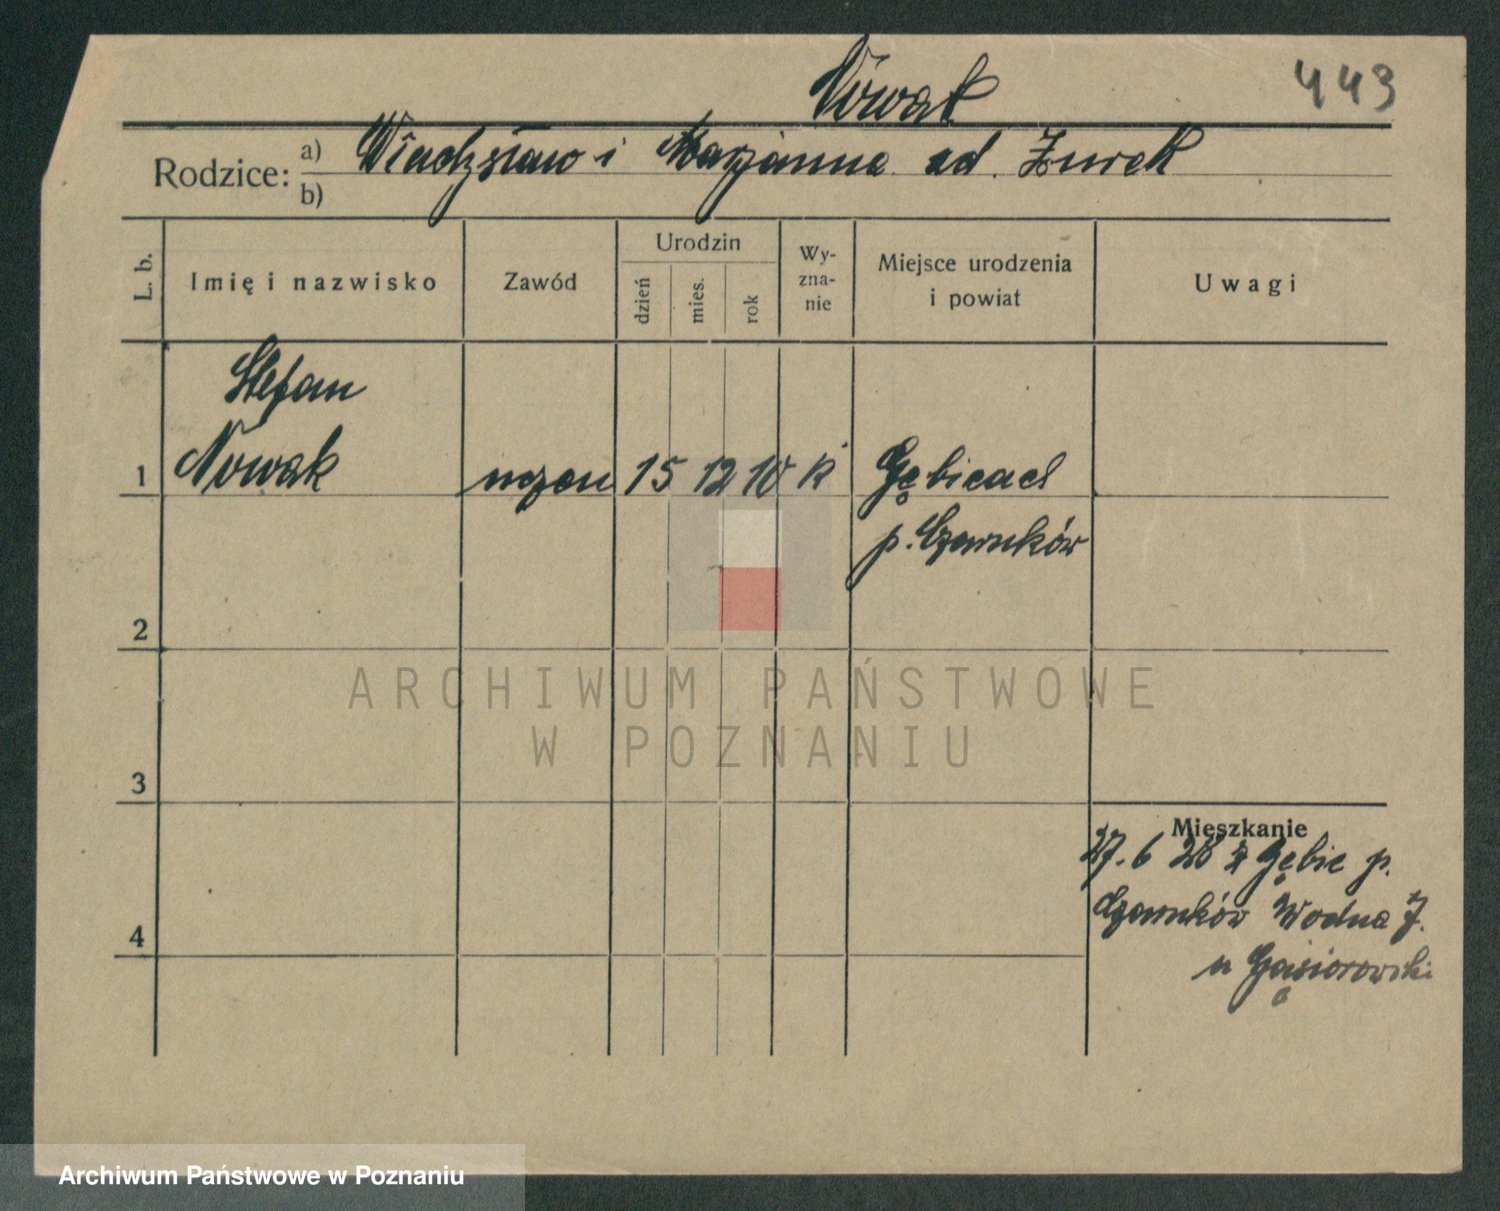 Nowak
443
Rodzice: a) Władysław i Marjanna zd. Żurek
b)
L. b.
Imię i nazwisko
Zawód
Urodzin
dzień
mies.
rok
Wy-
zna-
nie
Miejsce urodzenia
i powiat
Uwagi
Stefan
1 Nowak uczeń 15 12 10 k Gębicach
p. Czarnków
2
ARCHIWUM PAŃSTWOWE
W POZNANIU
3
Mieszkanie
27. 6 28 z Gębic p.
Czarnków Wodna 7.
4
u Gąsiorowski
Archiwum Państwowe w Poznaniu